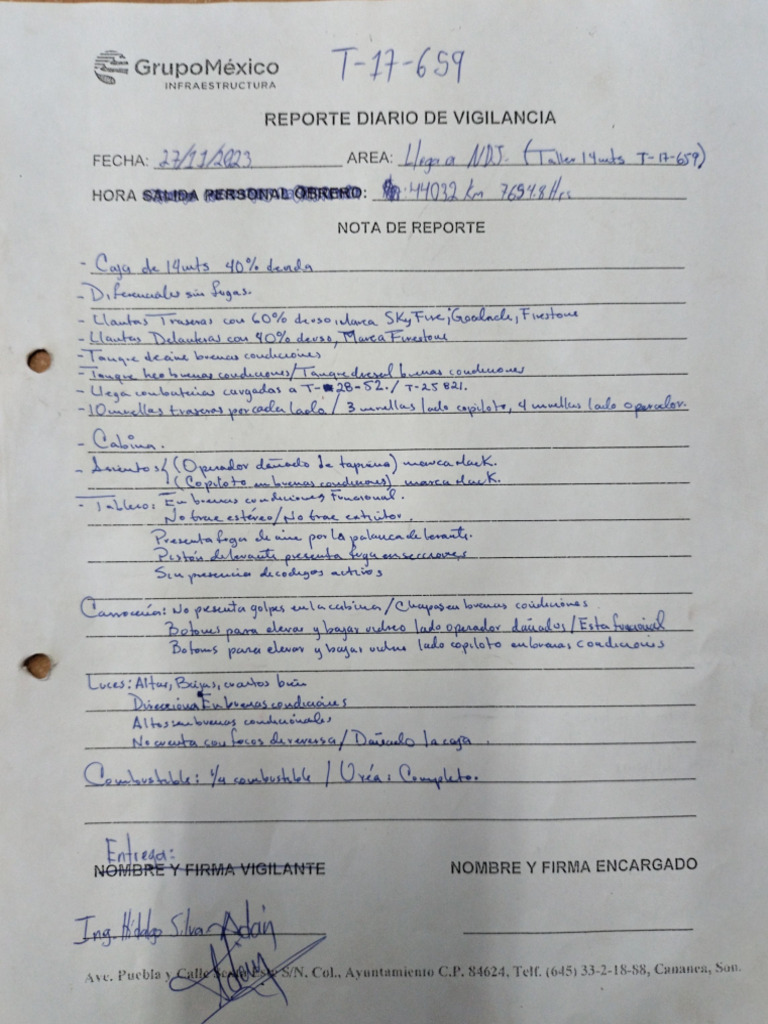 GrupoMéxico
INFRAESTRUCTURA
T-17-659
REPORTE DIARIO DE VIGILANCIA
FECHA: 27/11/2023 AREA: Llega a NDJ. (Taller 14mts T-17-659)
HORA SALIDA PERSONAL OBRERO: 44032 Km 7694.8 Hrs
NOTA DE REPORTE
- Caja de 14mts 40% de vida
- Diferenciales sin fugas.
- Llantas Traseras con 60% de uso, Marca SkyFire, Firestone
- Llantas Delanteras con 40% de uso, Marca Firestone
- Tanque de aire buenas condiciones
- Tanque buenas condiciones/Tanque diesel buenas condiciones
- Llega con baterias cargadas a T-28-52./ T-25 821.
- 10 muelles traseras por cada lado / 3 muelles lado copiloto, 4 muelles lado operador.
- Cabina.
- Asientos (Operador dañado de tapiceria) marca Mack.
(Copiloto en buenas condiciones) marca Mack.
- Tablero: En buenas condiciones Funcional.
No trae estéreo/No trae
Presenta fuga de aire por la palanca de levante.
Pistón de levante presenta fuga en secciones
Sin presencia de codigos activos
Carroceria: No presenta golpes en la cabina/Chapas en buenas condiciones
Botones para elevar y bajar vidreo lado operador dañados/Esta funcional
Botones para elevar y bajar vidrio lado copiloto en buenas condiciones
Luces: Altas, Bajas, cuartos bien
Direcciona En buenas condiciones
Altas en buenas
No cuenta con focos de reversa/Dañado la caja
Combustible: 1/4 combustible / Uréa: Completo.
Entrega:
NOMBRE Y FIRMA VIGILANTE NOMBRE Y FIRMA ENCARGADO
Ing. Hidalgo Silva Adán
Adán
Ave. Puebla y Calle S/N. Col., Ayuntamiento C.P. 84624, Telf. (645) 33-2-18-88, Cananea, Son.